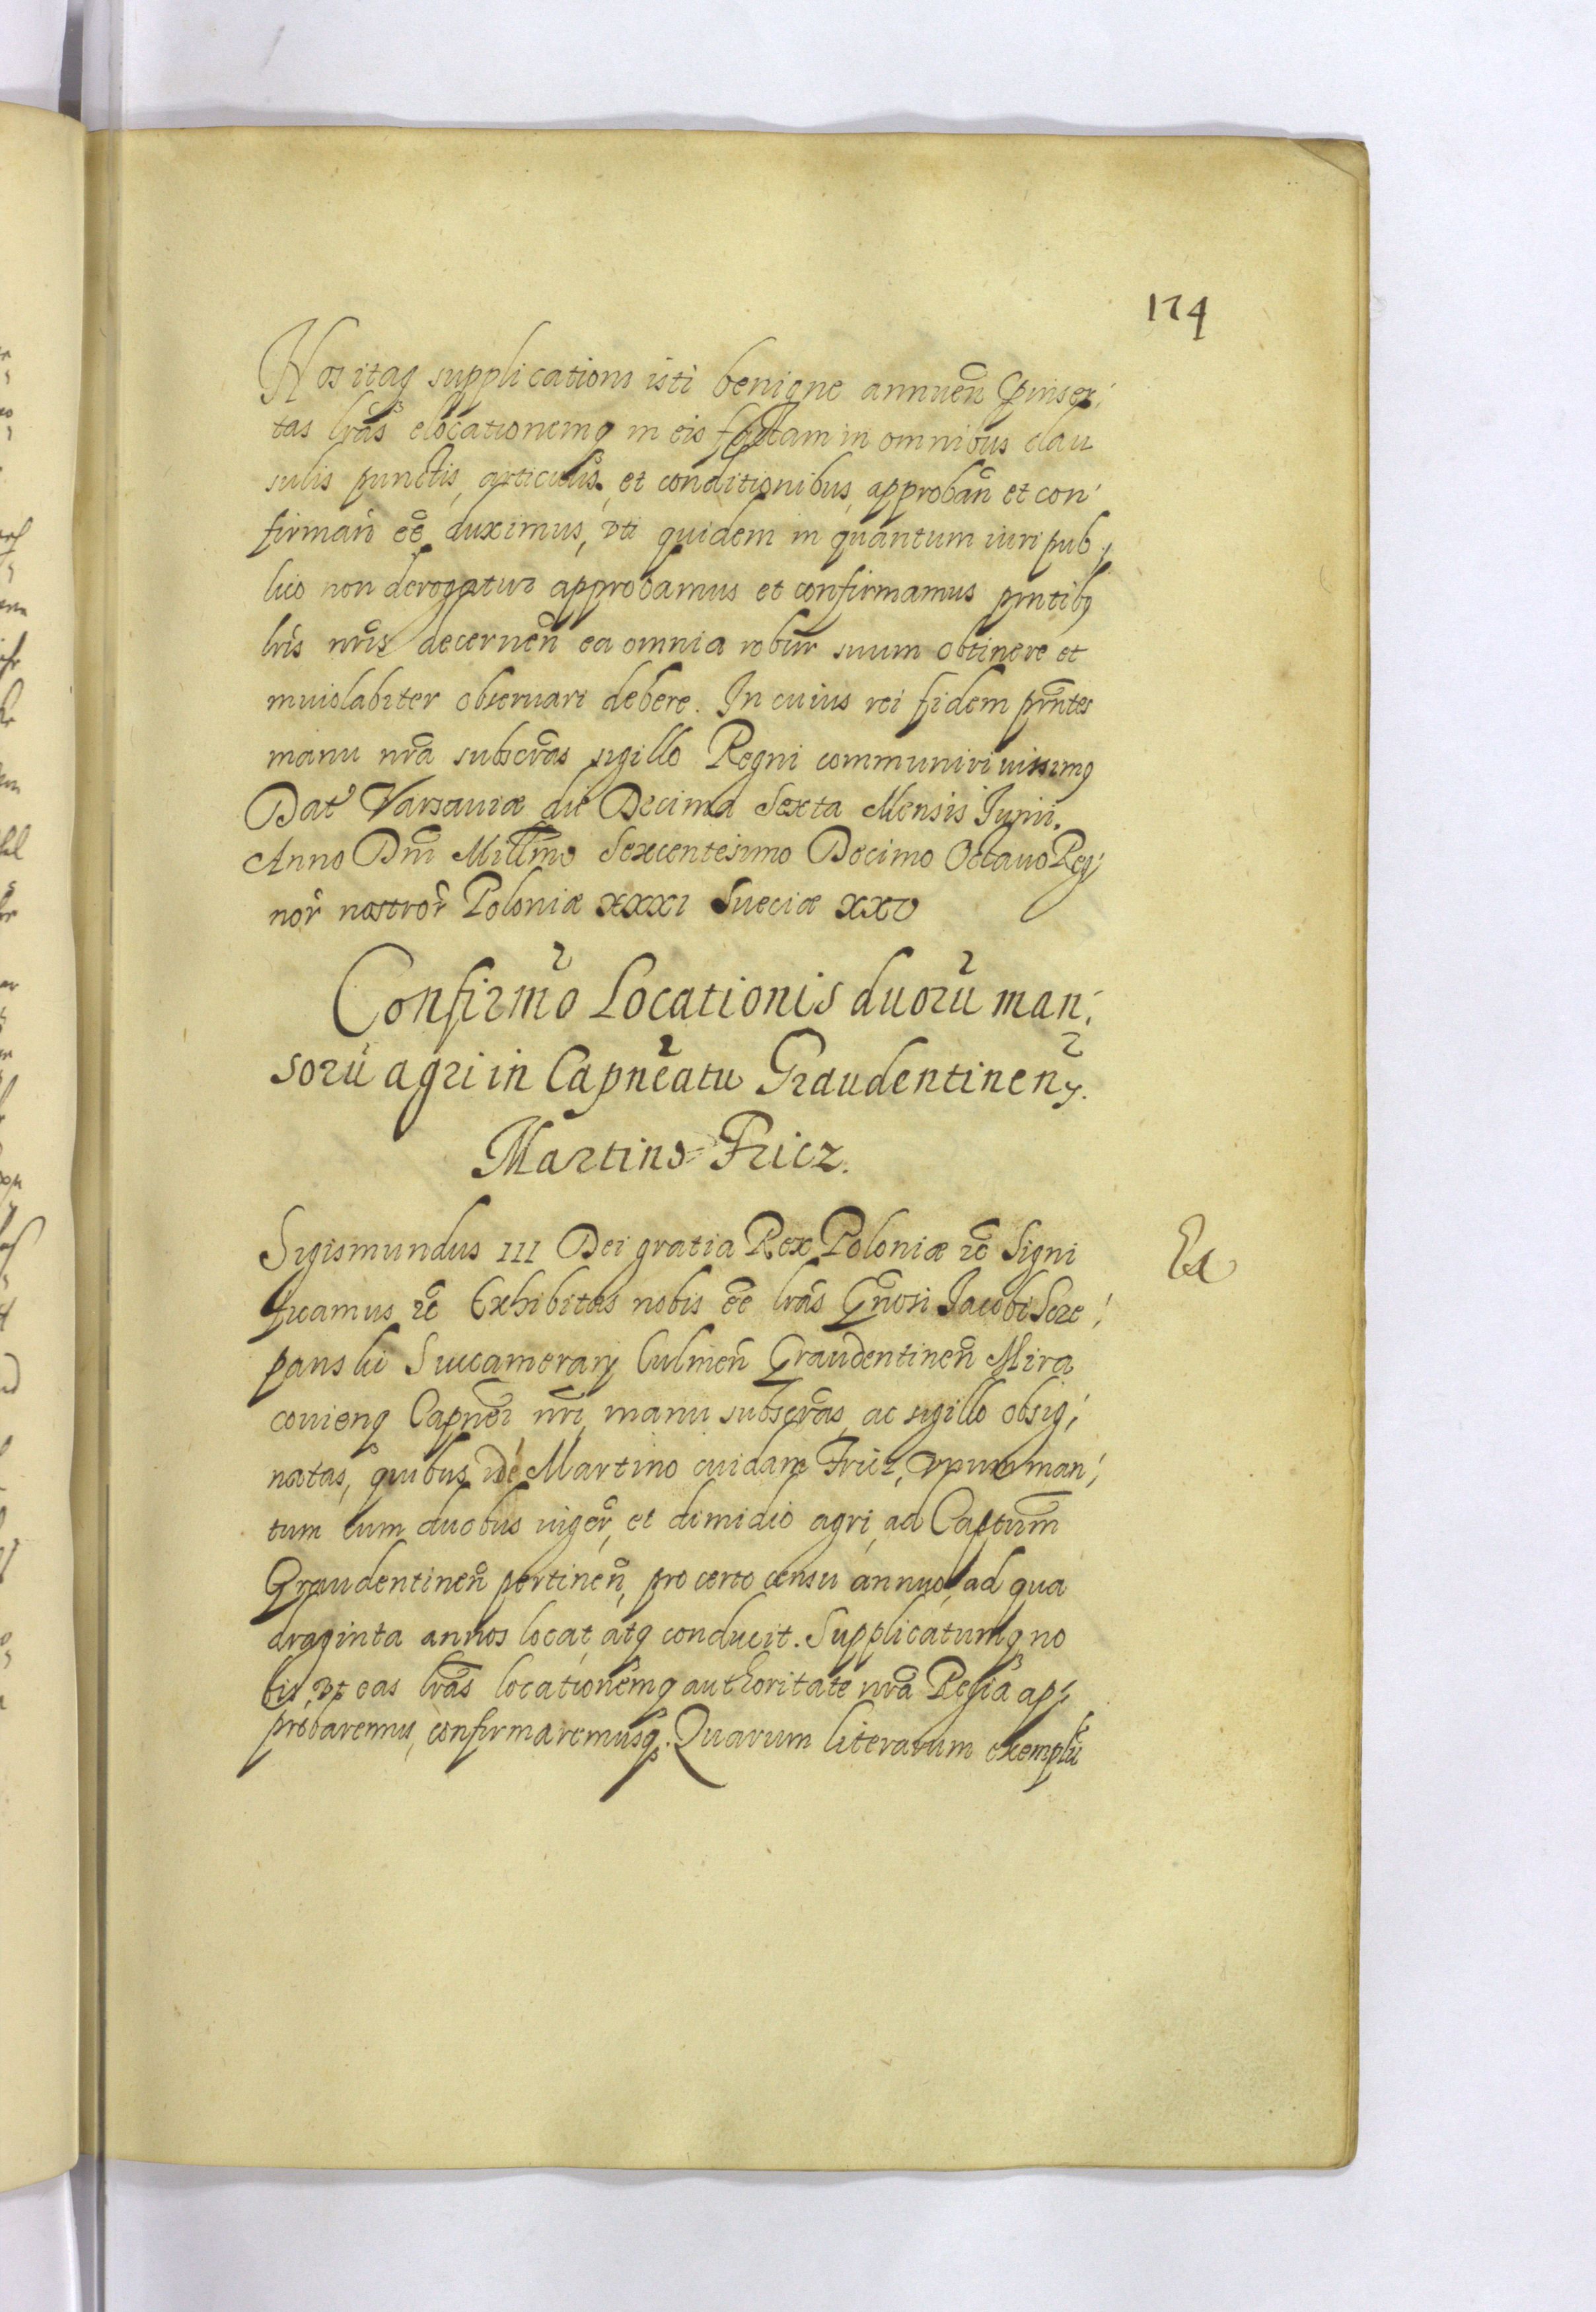 174
Nos itaq supplicationi isti benigne annuen̄ p̄inser,
tas lr̄as elocationemq in eis factam in omnibus clau
sulis punctis, articulis, et conditionibus, approban̄ et con,
firman̄ ēē duximus, vti quidem in quantum iuri pub,
lico non derogatur approbamus et confirmamus pn̄tibq
lr̄is nr̄is decernen̄ ea omnia robur suum obtinere et
inuiolabiter obseruari debere. In cuius rei fidem prn̄tes
manu nr̄a subscr̄as sigillo Regni communiri iussimq
Dat Varsauiæ die Decima Sexta Mensis Junii.
Anno Dnī Millm̄o Sexcentesimo Decimo Octauo Reg,
nor̄ nostror̄ Poloniæ XXXI Sueciæ XXV
Confirmō Locationis duorū man,
sorū agri in Capnēatu Graudentinen̄.
Martino Fricz.
Sigismundus III Dei gratia Rex Poloniæ ec̄ Signi
ficamus ec̄ Exhibitas nobis ēē lr̄as Gn̄osi Jacobi Scze,
panski Succamerarij Culmen̄ Graudentinen̄ Mira
couienq Capnēi nr̄i, manu subscr̄as, ac sigillo obsig,
natas, quibus idē Martino cuidam Fricz, vnum man,
tum cum duobus iuger̄, et dimidio agri, ad Captum̄
Graudentinen̄ pertinen̄, pro certo censu annuo, ad qua
draginta annos locat, atq conducit. Supplicatumq no
bis, vt eas lr̄as locationemq authoritate nr̄a Regia ap,
probaremus, confirmaremusq. Quarum literarum exemplū